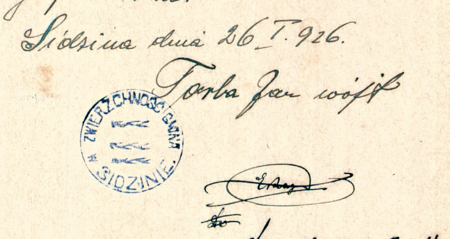 Sidzina dnia 26 I. 926.
Torba Jan wójt
ZWIERZCHNOŚĆ GMINNA
W SIDZINIE.